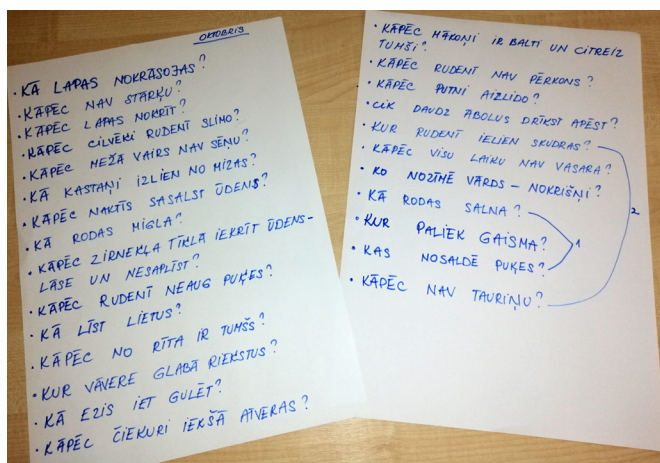 OKTOBRIS
• KĀ LAPAS NOKRĀSOJAS?
• KĀPĒC NAV STĀRĶU?
• KĀPĒC LAPAS NOKRĪT?
• KĀPĒC CILVĒKI RUDENĪ SLIMO?
• KĀPĒC MEŽĀ VAIRS NAV SĒŅU?
• KĀ KASTAŅI IZLIEN NO MIZAS?
• KĀPĒC NAKTĪS SASALST ŪDENS?
• KĀ RODAS MIGLA?
• KĀPĒC ZIRNEKĻA TĪKLĀ IEKRĪT ŪDENS-
LĀSE UN NESAPLĪST?
• KĀPĒC RUDENĪ NEAUG PUĶES?
• KĀ LĪST LIETUS?
• KĀPĒC NO RĪTA IR TUMŠS?
• KUR VĀVERE GLABĀ RIEKSTUS?
• KĀ EZIS IET GULĒT?
• KĀPĒC ČIEKURI IEKŠĀ ATVERAS?
• KĀPĒC MĀKOŅI IR BALTI UN CITREIZ
TUMŠI?
• KĀPĒC RUDENĪ NAV PĒRKONS?
• KĀPĒC PUTNI AIZLIDO?
• CIK DAUDZ ĀBOLUS DRĪKST APĒST?
• KUR RUDENĪ IELIEN SKUDRAS?
• KĀPĒC VISU LAIKU NAV VASARA?
• KO NOZĪMĒ VĀRDS – NOKRIŠŅI?
• KĀ RODAS SALNA?
• KUR PALIEK GAISMA?
• KAS NOSALDĒ PUĶES?
• KĀPĒC NAV TAURIŅU?
1
2